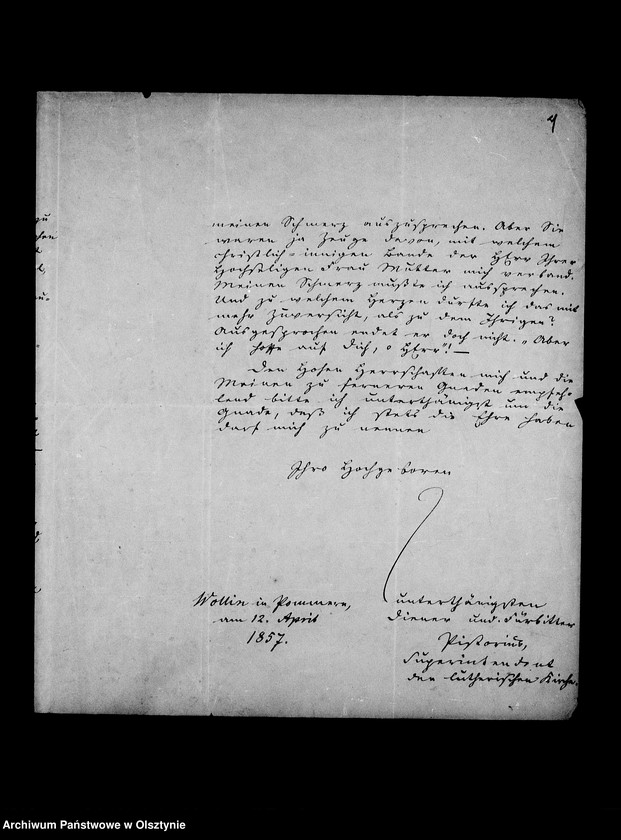 4
meinen Schmerz auszusprechen. Aber Sie
waren ja Zeuge davon, mit welchem
christlich-innigen Bande der HErr Ihrer
Hochseligen Frau Mutter mich verband.
Meinen Schmerz mußte ich aussprechen.
Und zu welchem Herzen durfte ich das mit
mehr Zuversicht, als zu dem Ihrigen?
Ausgesprochen endet er doch nicht. „Aber
ich hoffe auf Dich, o HErr"! —
Den Hohen Herrschaften mich und die
Meinen zu ferneren Gnaden empfeh-
lend bitte ich unterthänigst um die
Gnade, daß ich stets die Ehre haben
darf mich zu nennen
Ihro Hochgeboren
unterthänigsten
Diener und Fürbitter
Pistorius,
Superintendent
der lutherischen Kirche.
Wollin in Pommern,
am 12. April
1857.
Archiwum Państwowe w Olsztynie